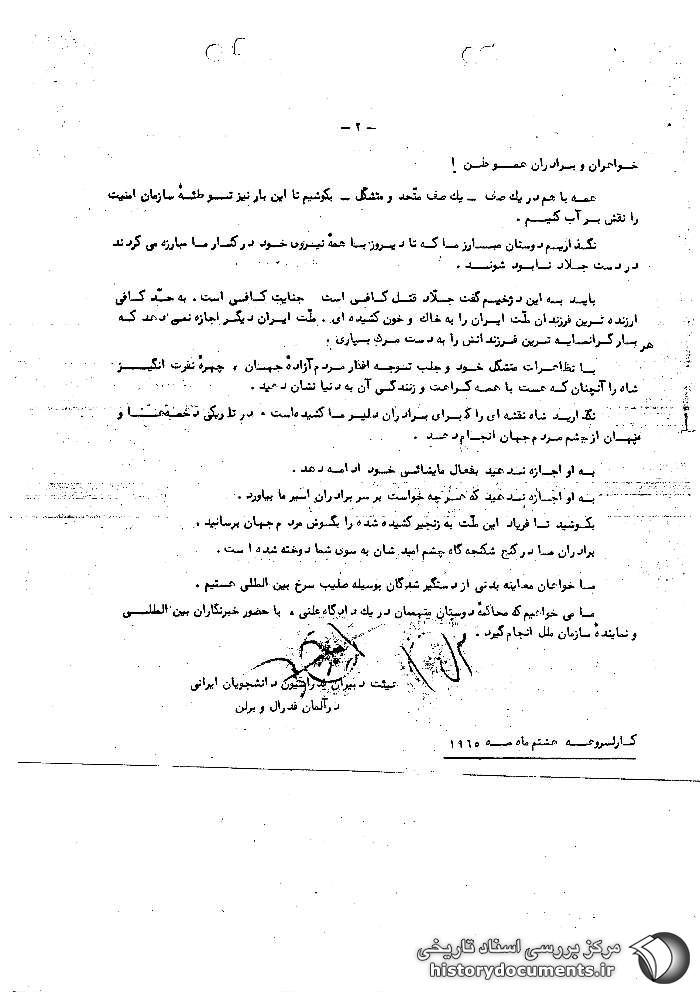 - ۲ -
خواهران و برادران هموطن !
همه با هم در یك صف ــ یك صف متّحد و متشکّل ــ بکوشیم تا این بار نیز توطئهٔ سازمان امنیت
را نقش بر آب کنیم .
نگذاریم دوستان مبارز ما که تا دیروز با همهٔ نیروی خود در کنار ما مبارزه می کردند
در دست جلاد نابود شوند .
باید به این دژخیم گفت جلّاد قتل کافی است جنایت کافی است . به حدّ کافی
ارزنده ترین فرزندان ملّت ایران را به خاك و خون کشیده ای . ملّت ایران دیگر اجازه نمی دهد که
هر بار گرانمایه ترین فرزندانش را به دست مرگ بسپاری .
با تظاهرات متشکل خود و جلب توجه افکار مردم آزادهٔ جهان ، چهرهٔ نفرت انگیز
شاه را آنچنان که هست با همه کراهت و زنندگی آن به دنیا نشان دهید .
نگذارید شاه نقشه ای را که برای برادران دلیر ما کشیده است ، در تاریکی دخمه ها و
پنهان از چشم مردم جهان انجام دهد .
به او اجازه ندهید بفعال مایشائی خود ادامه دهد .
به او اجازه ندهید که هر چه خواست بر سر برادران اسیر ما بیاورد .
بکوشید تا فریاد این ملّت به زنجیر کشیده شده را بگوش مردم جهان برسانید .
برادران ما در کنج شکنجه گاه چشم امیدشان به سوی شما دوخته شده است .
ما خواهان معاینه بدنی از دستگیر شدگان بوسیله صلیب سرخ بین المللی هستیم .
ما می خواهیم که محاکمهٔ دوستان متهمان در یك دادگاه علنی ، با حضور خبرنگاران بین المللی
و نمایندهٔ سازمان ملل انجام گیرد .
هیئت دبیران فدراسیون دانشجویان ایرانی
در آلمان فدرال و برلن
کارلسروهه هشتم ماه مه ۱۹۶۵
مرکز بررسی اسناد تاریخی
historydocuments.ir